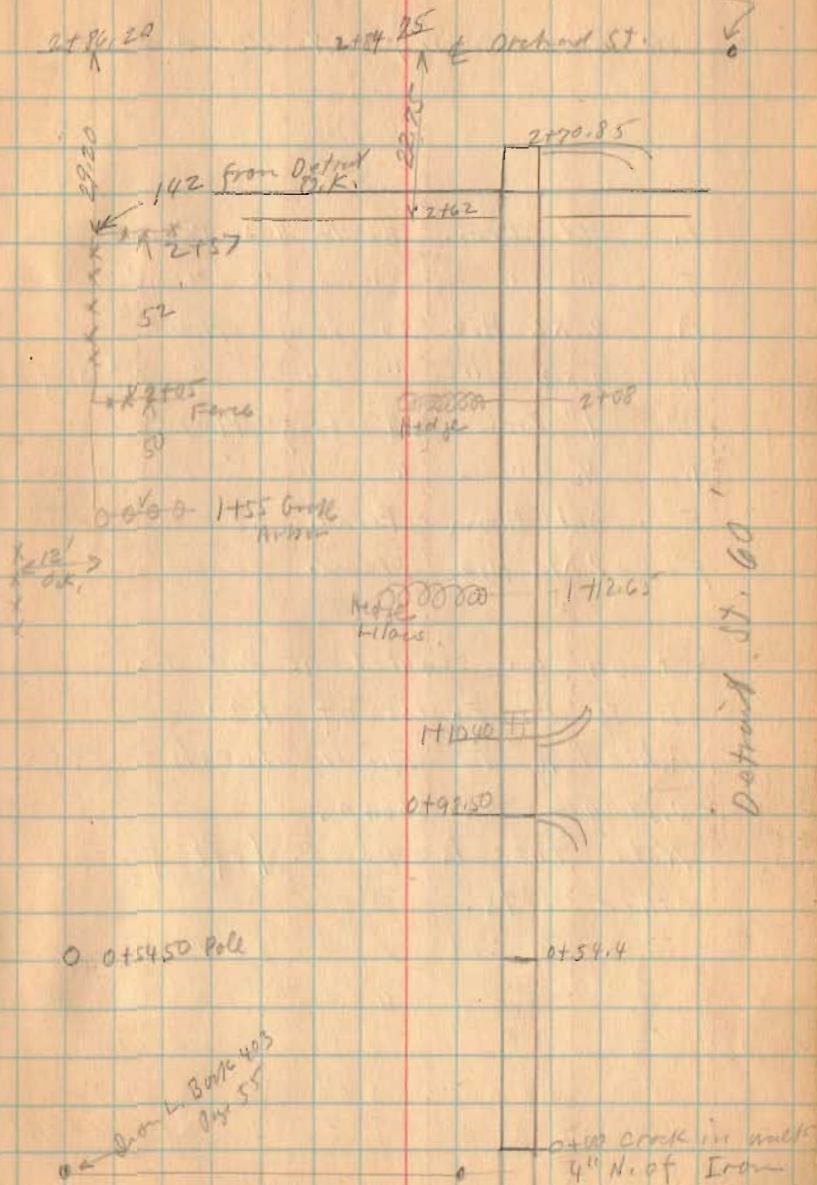 2+86.20
2+84.25 ℄ Orchard St.
29.20
22.25
2+70.85
142 from Detroit
O.K.
2+62
2+57
52
2+05
Fence
50
2+08
Hedge
1+55 Grape
Arbor
12'
O.K.
1+12.65
Hedge
Lilacs.
Detroit St. 60'
1+10.40
0+92.50
0+54.50 Pole
0+54.4
Iron L. Book 403
Page 55
0+00 Crack in walk
4" N. of Iron